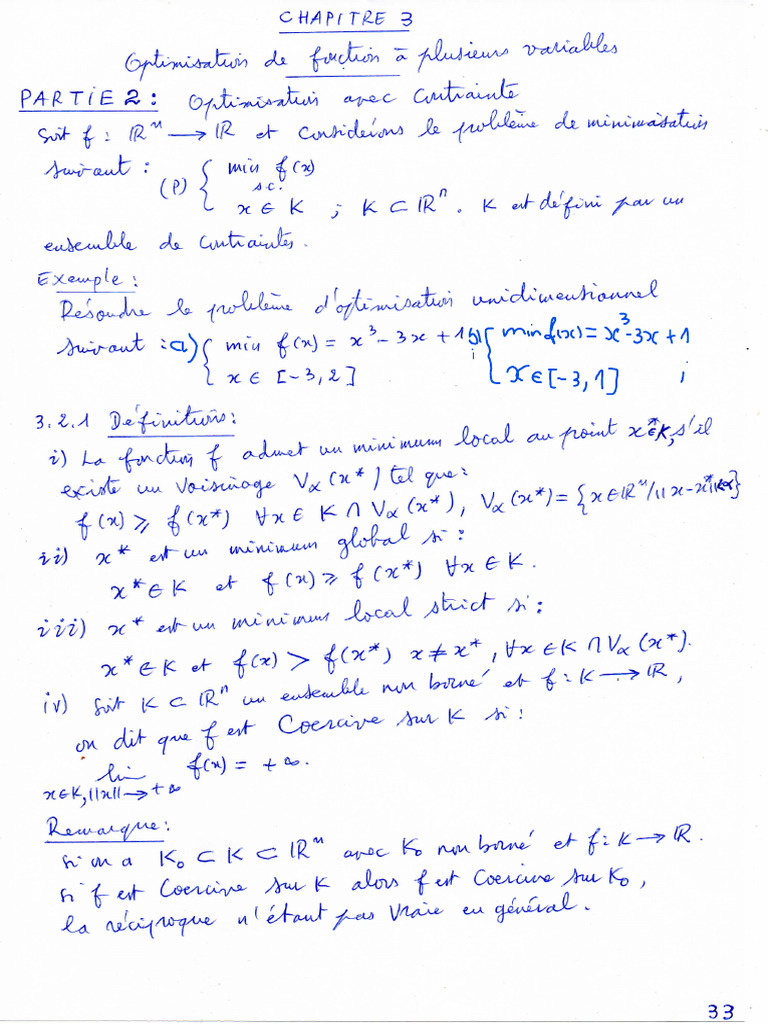 CHAPITRE 3
Optimisation de fonction à plusieurs variables
PARTIE 2 : Optimisation avec Contrainte
Soit f : ℝⁿ ⟶ ℝ et considérons le problème de minimisation
suivant :
(P) { min f(x)
s.c.
x ∈ K ; K ⊂ ℝⁿ. K est défini par un
ensemble de contraintes.
Exemple :
Résoudre le problème d'optimisation unidimensionnel
suivant : a) { min f(x) = x³ - 3x + 1 ; b) { min f(x) = x³ - 3x + 1
x ∈ [-3, 2] x ∈ [-3, 1] ;
3.2.1 Définitions :
i) La fonction f admet un minimum local au point x* ∈ K, s'il
existe un voisinage Vα(x*) tel que :
f(x) ⩾ f(x*) ∀x ∈ K ∩ Vα(x*), Vα(x*) = {x ∈ ℝⁿ / ||x - x*|| < α}
ii) x* est un minimum global si :
x* ∈ K et f(x) ⩾ f(x*) ∀x ∈ K.
iii) x* est un minimum local strict si :
x* ∈ K et f(x) > f(x*) x ≠ x*, ∀x ∈ K ∩ Vα(x*).
iv) Soit K ⊂ ℝⁿ un ensemble non borné et f : K ⟶ ℝ,
on dit que f est Coercive sur K si :
lim f(x) = +∞.
x∈K, ||x|| ⟶ +∞
Remarque :
si on a K₀ ⊂ K ⊂ ℝⁿ avec K₀ non borné et f : K ⟶ ℝ.
si f est Coercive sur K alors f est Coercive sur K₀,
la réciproque n'étant pas vraie en général.
33